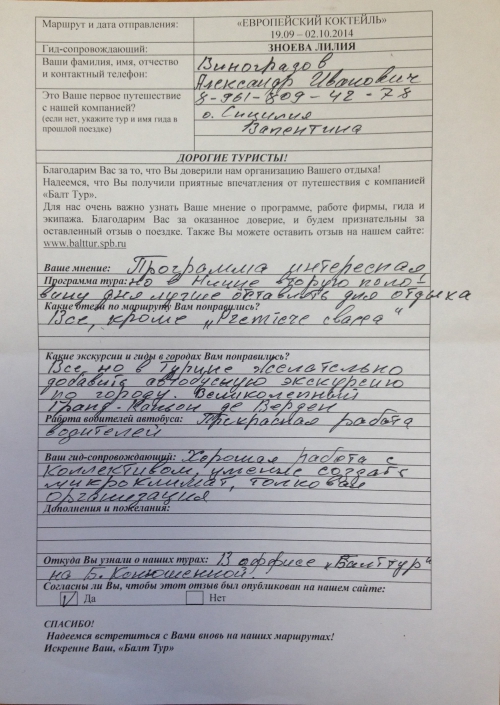 Маршрут и дата отправления:
«ЕВРОПЕЙСКИЙ КОКТЕЙЛЬ»
19.09 – 02.10.2014
Гид-сопровождающий:
ЗНОЕВА ЛИЛИЯ
Ваши фамилия, имя, отчество
и контактный телефон:
Виноградов
Александр Иванович
8-961-809-42-78
Это Ваше первое путешествие
с нашей компанией?
(если нет, укажите тур и имя гида в
прошлой поездке)
о. Сицилия
Валентина
ДОРОГИЕ ТУРИСТЫ!
Благодарим Вас за то, что Вы доверили нам организацию Вашего отдыха!
Надеемся, что Вы получили приятные впечатления от путешествия с компанией
«Балт Тур».
Для нас очень важно узнать Ваше мнение о программе, работе фирмы, гида и
экипажа. Благодарим Вас за оказанное доверие, и будем признательны за
оставленный отзыв о поездке. Также Вы можете оставить отзыв на нашем сайте:
www.balttur.spb.ru
Ваше мнение: Программа интересная
Программа тура: но в Ницце вторую поло-
вину дня лучше оставлять для отдыха
Какие отели по маршруту Вам понравились?
Все, кроме „Premiere
Какие экскурсии и гиды в городах Вам понравились?
Все, но в Турине желательно
добавить автобусную экскурсию
по городу. Великолепный
Гранд-Каньон де Верден
Работа водителей автобуса: Прекрасная работа
водителей
Ваш гид-сопровождающий: Хорошая работа с
коллективом, умение создать
микроклимат, толковая
организация
Дополнения и пожелания:
Откуда Вы узнали о наших турах: В оффисе „Балттур“
на Б. Конюшенной.
Согласны ли Вы, чтобы этот отзыв был опубликован на нашем сайте:
Да Нет
СПАСИБО!
Надеемся встретиться с Вами вновь на наших маршрутах!
Искренне Ваш, «Балт Тур»